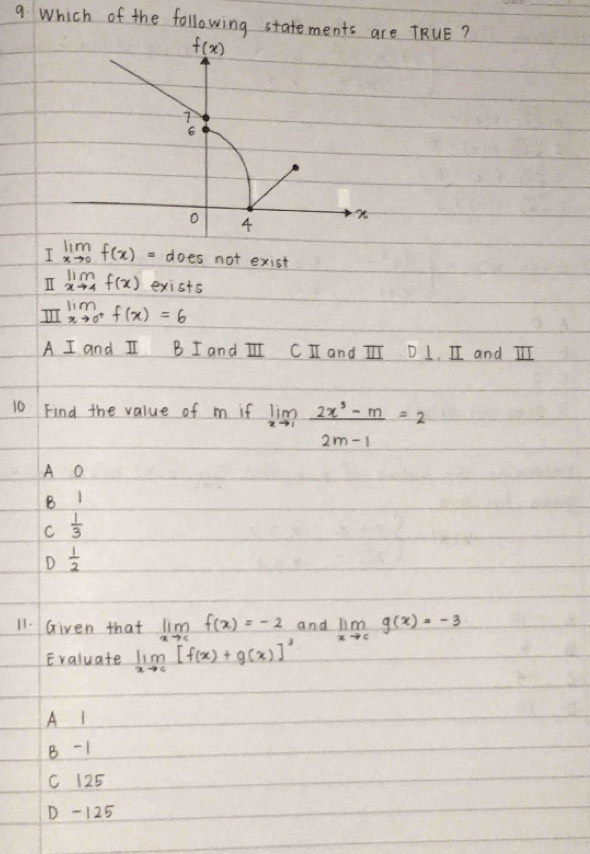 9. Which of the following statements are TRUE ?
f(x)
7
6
0 4 x
I lim x→0 f(x) = does not exist
II lim x→4 f(x) exists
III lim x→0⁺ f(x) = 6
A I and II B I and III C II and III D I, II and III
10 Find the value of m if lim x→1 (2x³ - m)/(2m-1) = 2
A 0
B 1
C 1/3
D 1/2
11. Given that lim x→c f(x) = -2 and lim x→c g(x) = -3
Evaluate lim x→c [f(x) + g(x)]³
A 1
B -1
C 125
D -125